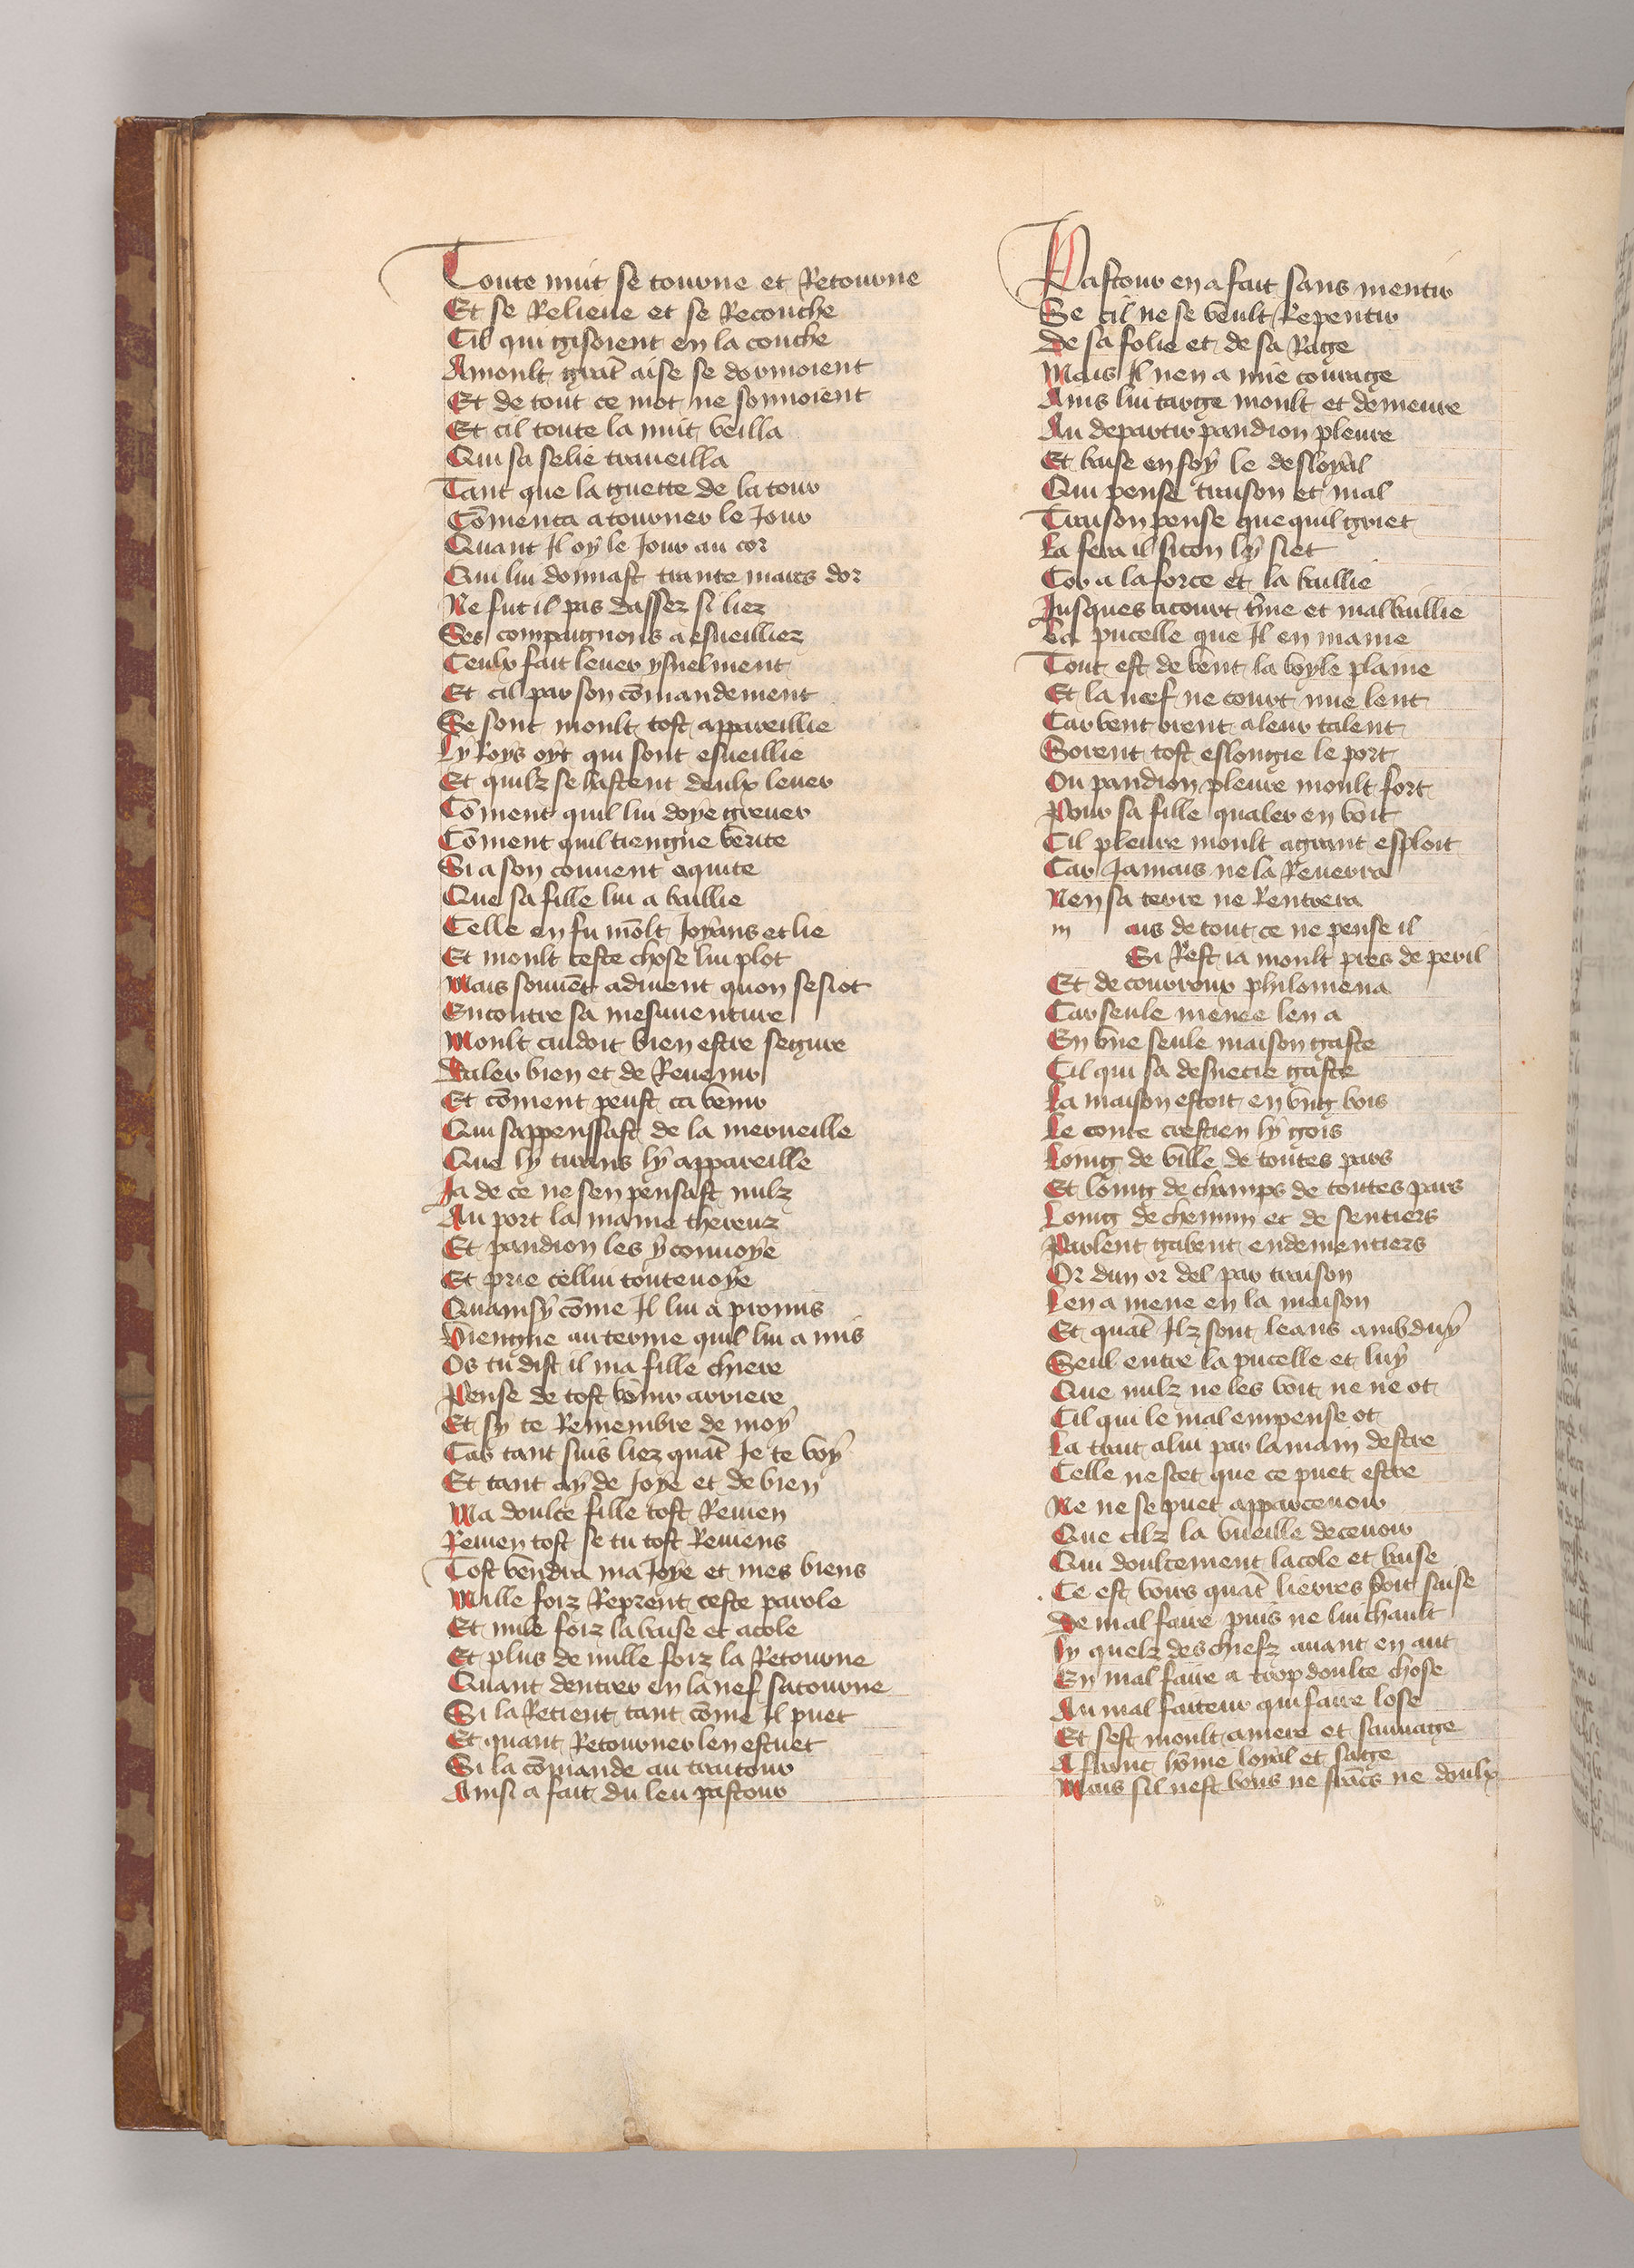 Toute nuit se tourne et Retourne
Et se Relieue et se Recouche
Cil qui gisoient en la couche
A moult grāt aise se dormoient
Et de tout ce mot ne sonnoient
Et cil toute la nuit veilla
Qui sa folie traueilla
Tant que la guette de la tour
Cōmenca a tourner le Jour
Quant Il oy le Jour au cor
Qui lui donnast trante mars dor
Ne fut il pas dassez si liez
Ses compaignons a esueilliez
Ceulx fait leuer ysnelment
Et cil par son cōmandement
Se sont moult tost appareillie
Ly Roys oyt qui sont esueillie
Et quilz se hastent deulx leuer
Cōment quil lui doye greuer
Cōment quil tiengne verite
Si a son conuent aquite
Que sa fille lui a baillie
Celle en fu mōlt Joyans et lie
Et moult ceste chose lui plot
Mais souuēt aduient quon sesiot
Encontre sa mesauenture
Moult cuidoit bien estre segure
Daler bien et de Reuenir
Et cōment peust ca venir
Qui sappenssast de la merueille
Que ly tirans ly appareille
Ja de ce ne sen pensast nulz
Au port la maine thereuz
Et pandion les y conuoye
Et prie cellui touteuoye
Quainsy cōme Il lui a promis
Viengne au terme quil lui a mis
Os tu dist il ma fille chiere
Pense de tost venir arriere
Et sy te Remembre de moy
Car tant suis liez quāt Je te voy
Et tant ay de Joye et de bien
Ma doulce fille tost Reuien
Reuien tost se tu tost Reuiens
Tost vendra ma Joye et mes biens
Mille foiz Reprent ceste parole
Et mile foiz la baise et acole
Et plus de mille foiz la Retourne
Quant dentrer en la nef satourne
Si la Retient tant cōme il puet
Et quant Retourner len estuet
Si la cōmande au traitour
Ainsi a fait du leu pastour
Pastour en a fait sans mentir
Se cil ne se veult Repentir
De sa folie et de sa Rage
Mais Il nen a mie courage
Ains lui targe moult et demeure
Au departir pandion pleure
Et baise en foy le desloyal
Qui pense traison et mal
Traison pense que quil griet
La fera il si con ly siet
Cor a la force et la baillie
Jusques a court tīne et mal baillie
La pucelle que Il en maine
Tout est de vent la voyle plaine
Et la neef ne court mie lent
Car vent orent a leur talent
Sorent tost eslongie le port
Ou pandion pleure moult fort
Pour sa fille qualer en voit
Cil pleure moult a grant esploit
Car Jamais ne la Reuerra
Nen sa terre ne Rentrera
m ais de tout ce ne pense il
Si Rest ia moult pres de peril
Et de courrour philomena
Car seule menee len a
En vne seule maison gaste
Cil qui sa desuerie gaste
La maison estoit en vng bois
Le conte crestien ly gois
Loing de ville de toutes pars
Et loing de champs de toutes pars
Loing de chemin et de sentiers
Parlent gabent endementiers
Or dun or del par traison
Len a mene en la maison
Et quāt Ilz sont leans ambduy
Seul entre la pucelle et luy
Que nulz ne les voit ne ne ot
Cil qui le mal empense ot
La trait a lui par la main destre
Celle ne scet que ce puet estre
Ne ne se puet apparceuoir
Que cilz la vueille deceuoir
Qui doulcement lacole et baise
Ce est voirs quāt lierres voit saise
De mal faire puis ne lui chault
ly quelz des chiefz auant en aut
En mal faire a trop doulce chose
Au mal faiteur qui faire lose
Et sest moult amere et sauuage
A franc hōme loyal et sage
Mais sil nest bons ne frācs ne doulx